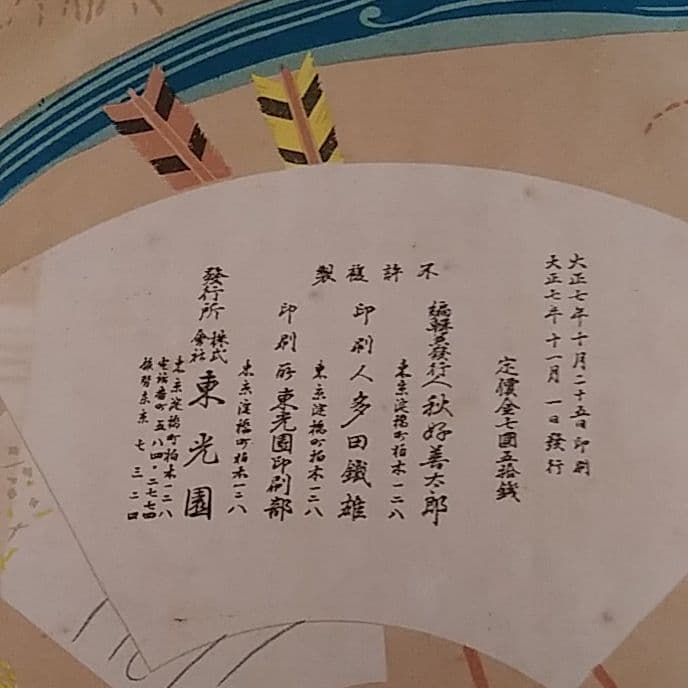 大正七年十月二十五日印刷
大正七年十一月一日發行
定價金七圓五拾銭
不許複製
編輯兼發行人 秋好善太郎
東京淀橋町柏木一二八
印刷人 多田鐵雄
東京淀橋町柏木一二八
印刷所 東光園印刷部
東京淀橋町柏木一二八
發行所 株式會社 東光園
東京淀橋町柏木一二八
電話番町五八四・二七七四
振替東京七三二四